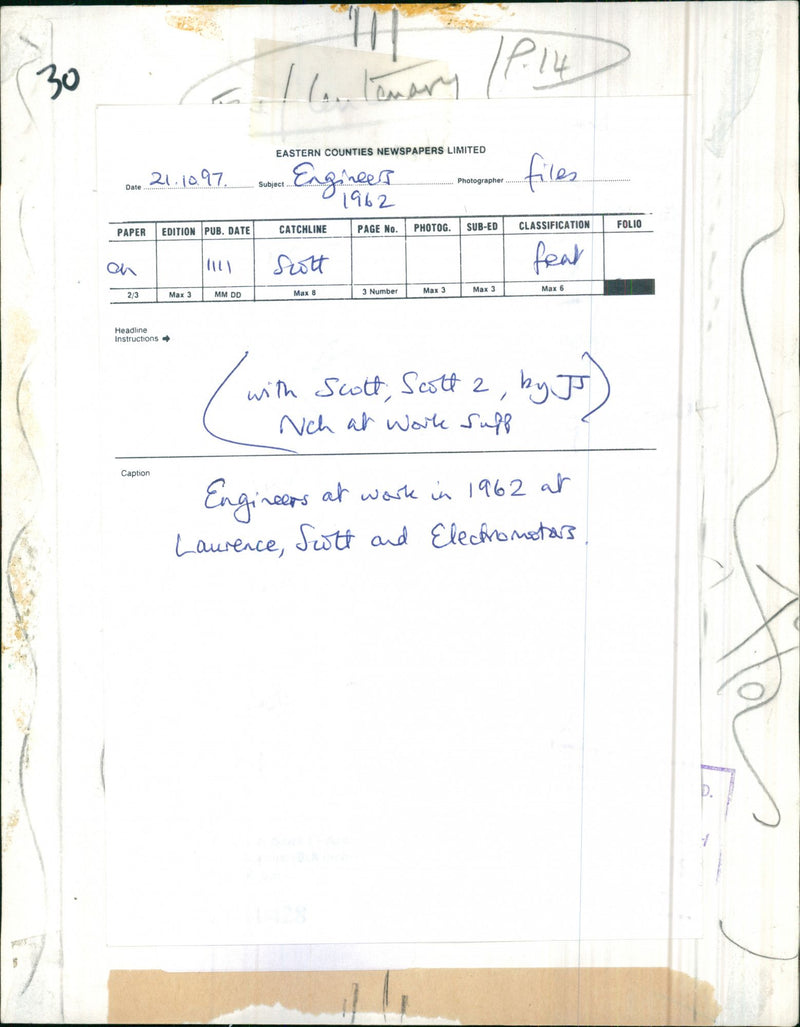 30
Centenary P.14
EASTERN COUNTIES NEWSPAPERS LIMITED
Date 21.10.97. Subject Engineers Photographer files
1962
PAPER EDITION PUB. DATE CATCHLINE PAGE No. PHOTOG. SUB-ED CLASSIFICATION FOLIO
1111 Scott feat
2/3 Max 3 MM DD Max 8 3 Number Max 3 Max 3 Max 6
Headline
Instructions →
(with Scott, Scott 2, by JJ)
Nch at Work Supp
Caption
Engineers at work in 1962 at
Laurence, Scott and Electromotors.
D.